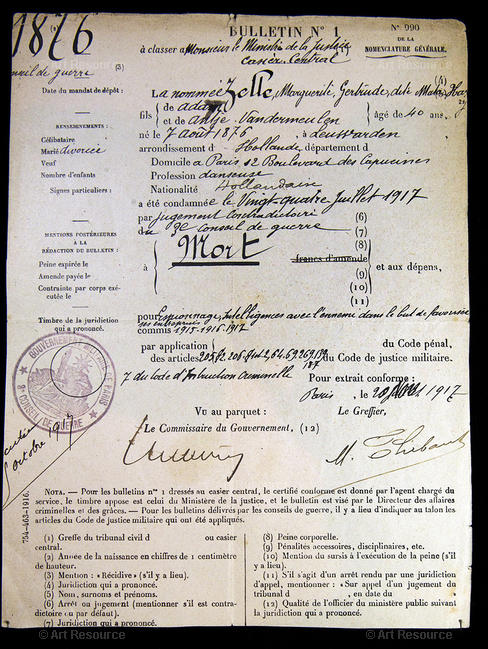 1876
BULLETIN N° 1
N° 990
DE LA
NOMENCLATURE GÉNÉRALE.
à classer à Monsieur le Ministre de la Justice
Casier Central
Conseil de guerre
(3)
(4)
Date du mandat de dépôt :
La nommée Zelle, Marguerite, Gertrude, dite Mata Hari
fils de Adam
et de Antje Vandermeulen
âgé de 40 ans
RENSEIGNEMENTS :
né le 7 août 1876, à Leuwarden
Célibataire
arrondissement d Hollande département d
Marié divorcé
Veuf
Domicile à Paris 12 Boulevard des Capucines
Nombre d'enfants
Profession danseuse
Signes particuliers :
Nationalité Hollandaise
a été condamnée le Vingt-quatre Juillet 1917
par jugement contradictoire (6)
MENTIONS POSTÉRIEURES
À LA
RÉDACTION DU BULLETIN :
du 3e Conseil de guerre (7)
Peine expirée le
Amende payée le
Contrainte par corps exé-
cutée le
à Mort
(8)
francs d'amende
(9)
et aux dépens,
(10)
(11)
Timbre de la juridiction
qui a prononcé.
pour Espionnage, Intelligences avec l'ennemi dans le but de favoriser
ses entreprises
commis 1915-1916-1917
par application du Code pénal,
des articles 205 § 2. 206 du Code de justice militaire.
187
7 du Code d'Instruction Criminelle
Pour extrait conforme :
Paris, le 20 1917
GOUVERNEMENT MILITAIRE DE PARIS
3e CONSEIL DE GUERRE
octobre 1917
VU AU PARQUET :
Le Greffier,
Le Commissaire du Gouvernement, (12)
M. Thibaut
754-463-1916.
NOTA. — Pour les bulletins nos 1 dressés au casier central, le certifié conforme est donné par l'agent chargé du
service, le timbre apposé est celui du Ministère de la justice, et le bulletin est visé par le Directeur des affaires
criminelles et des grâces. — Pour les bulletins délivrés par les conseils de guerre, il y a lieu d'indiquer au talon les
articles du Code de justice militaire qui ont été appliqués.
(1) Greffe du tribunal civil d ou casier
central.
(2) Année de la naissance en chiffres de 1 centimètre
de hauteur.
(3) Mention : « Récidive » (s'il y a lieu).
(4) Juridiction qui a prononcé.
(5) Nom, surnoms et prénoms.
(6) Arrêt ou jugement (mentionner s'il est contra-
dictoire ou par défaut).
(7) Juridiction qui a prononcé.
(8) Peine corporelle.
(9) Pénalités accessoires, disciplinaires, etc.
(10) Mention du sursis à l'exécution de la peine (s'il
y a lieu).
(11) S'il s'agit d'un arrêt rendu par une juridiction
d'appel, mentionner : « Sur appel d'un jugement du
tribunal d , en date du
(12) Qualité de l'officier du ministère public suivant
la juridiction qui a prononcé.
© Art Resource
© Art Resource
© Art Resource